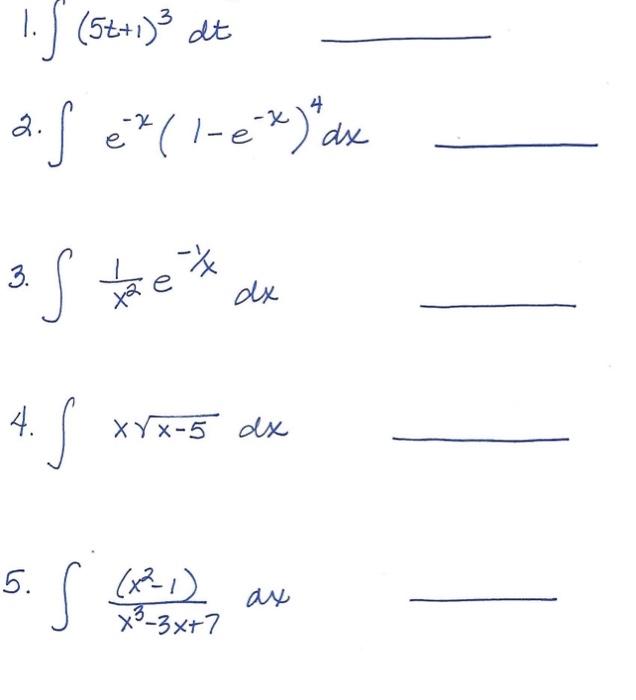 1. ∫ (5t+1)³ dt ______
2. ∫ e⁻ˣ( 1-e⁻ˣ)⁴ dx ______
3. ∫ 1/x² e^(-1/x) dx ______
4. ∫ x√x-5 dx ______
5. ∫ (x²-1)/(x³-3x+7) dx ______